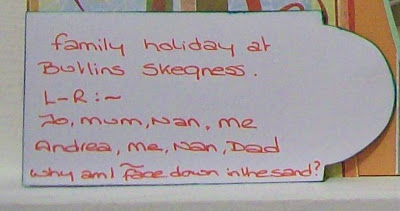 family holiday at
Butlins Skegness.
L-R:~
Jo, mum, Nan, me
Andrea, me, Nan, Dad
why am I face down in the sand?